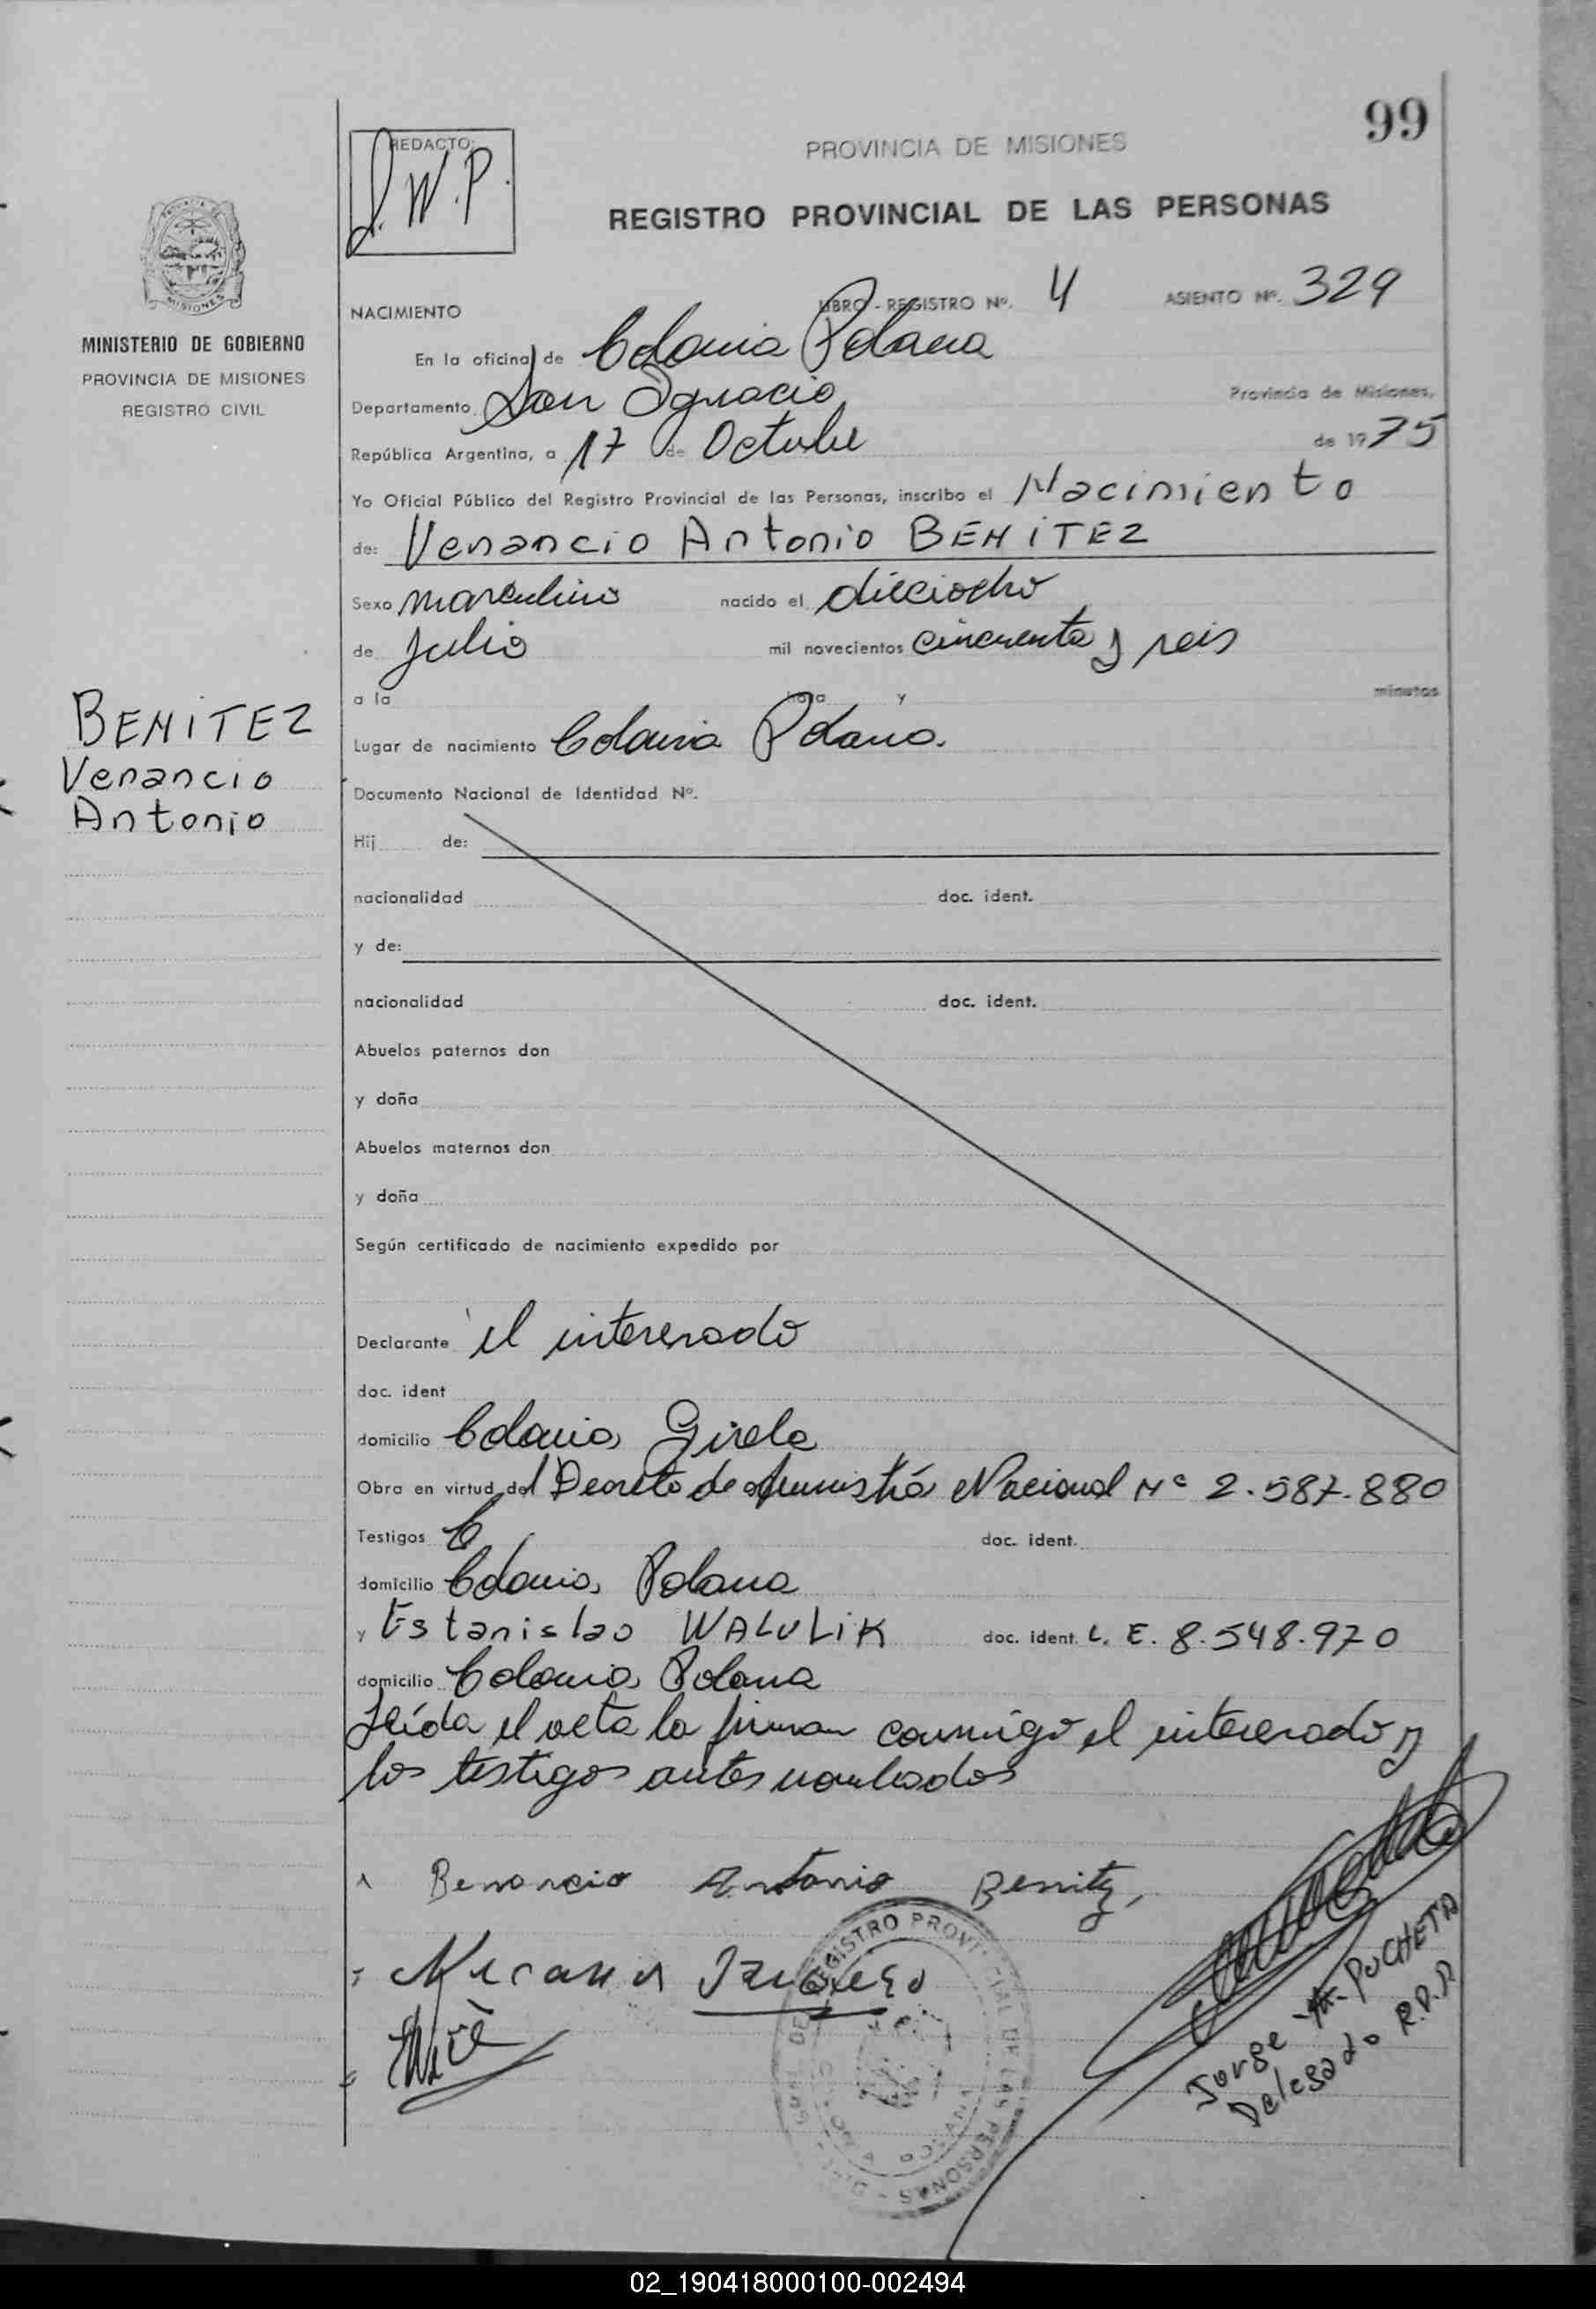 99
REDACTO:
J.W.P.
PROVINCIA DE MISIONES
REGISTRO PROVINCIAL DE LAS PERSONAS
MISIONES
MINISTERIO DE GOBIERNO
PROVINCIA DE MISIONES
REGISTRO CIVIL
NACIMIENTO LIBRO - REGISTRO Nº. 4 ASIENTO Nº. 329
En la oficina de Colonia Polana
Departamento San Ignacio Provincia de Misiones,
República Argentina, a 17 de Octubre de 1975
Yo Oficial Público del Registro Provincial de las Personas, inscribo el Nacimiento
de: Venancio Antonio BENITEZ
Sexo masculino nacido el dieciocho
de Julio mil novecientos cincuenta y seis
a la hora y minutos
BENITEZ
Venancio
Antonio
Lugar de nacimiento Colonia Polana.
Documento Nacional de Identidad Nº.
Hij de:
nacionalidad doc. ident.
y de:
nacionalidad doc. ident.
Abuelos paternos don
y doña
Abuelos maternos don
y doña
Según certificado de nacimiento expedido por
Declarante el interesado
doc. ident
domicilio Colonia Gisela
Obra en virtud del Decreto de Amnistía Nacional Nº 2.587.880
Testigos doc. ident.
domicilio Colonia Polana
y Estanislao WALULIK doc. ident. L. E. 8.548.970
domicilio Colonia Polana
Leída el acta la firman conmigo el interesado y
los testigos antes nombrados
Benancio Antonio Benitez
REGISTRO PROVINCIAL DE LAS PERSONAS
COLONIA POLANA
Jorge PUCHETA
Delegado R.P.P.
02_190418000100-002494